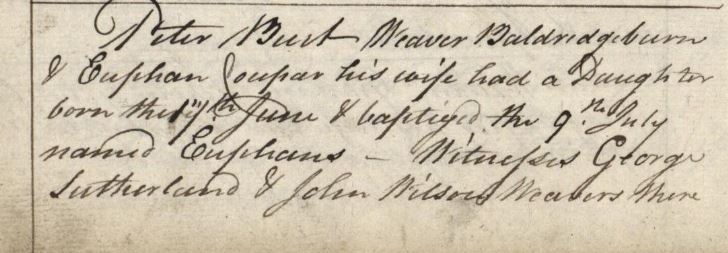 Peter Bust Weaver Baldridgeburn
& Euphan Coupar his wife had a Daughter
born the 17th June & baptized the 9th July
named Euphans – Witnesses George
Sutherland & John Wilson Weavers there